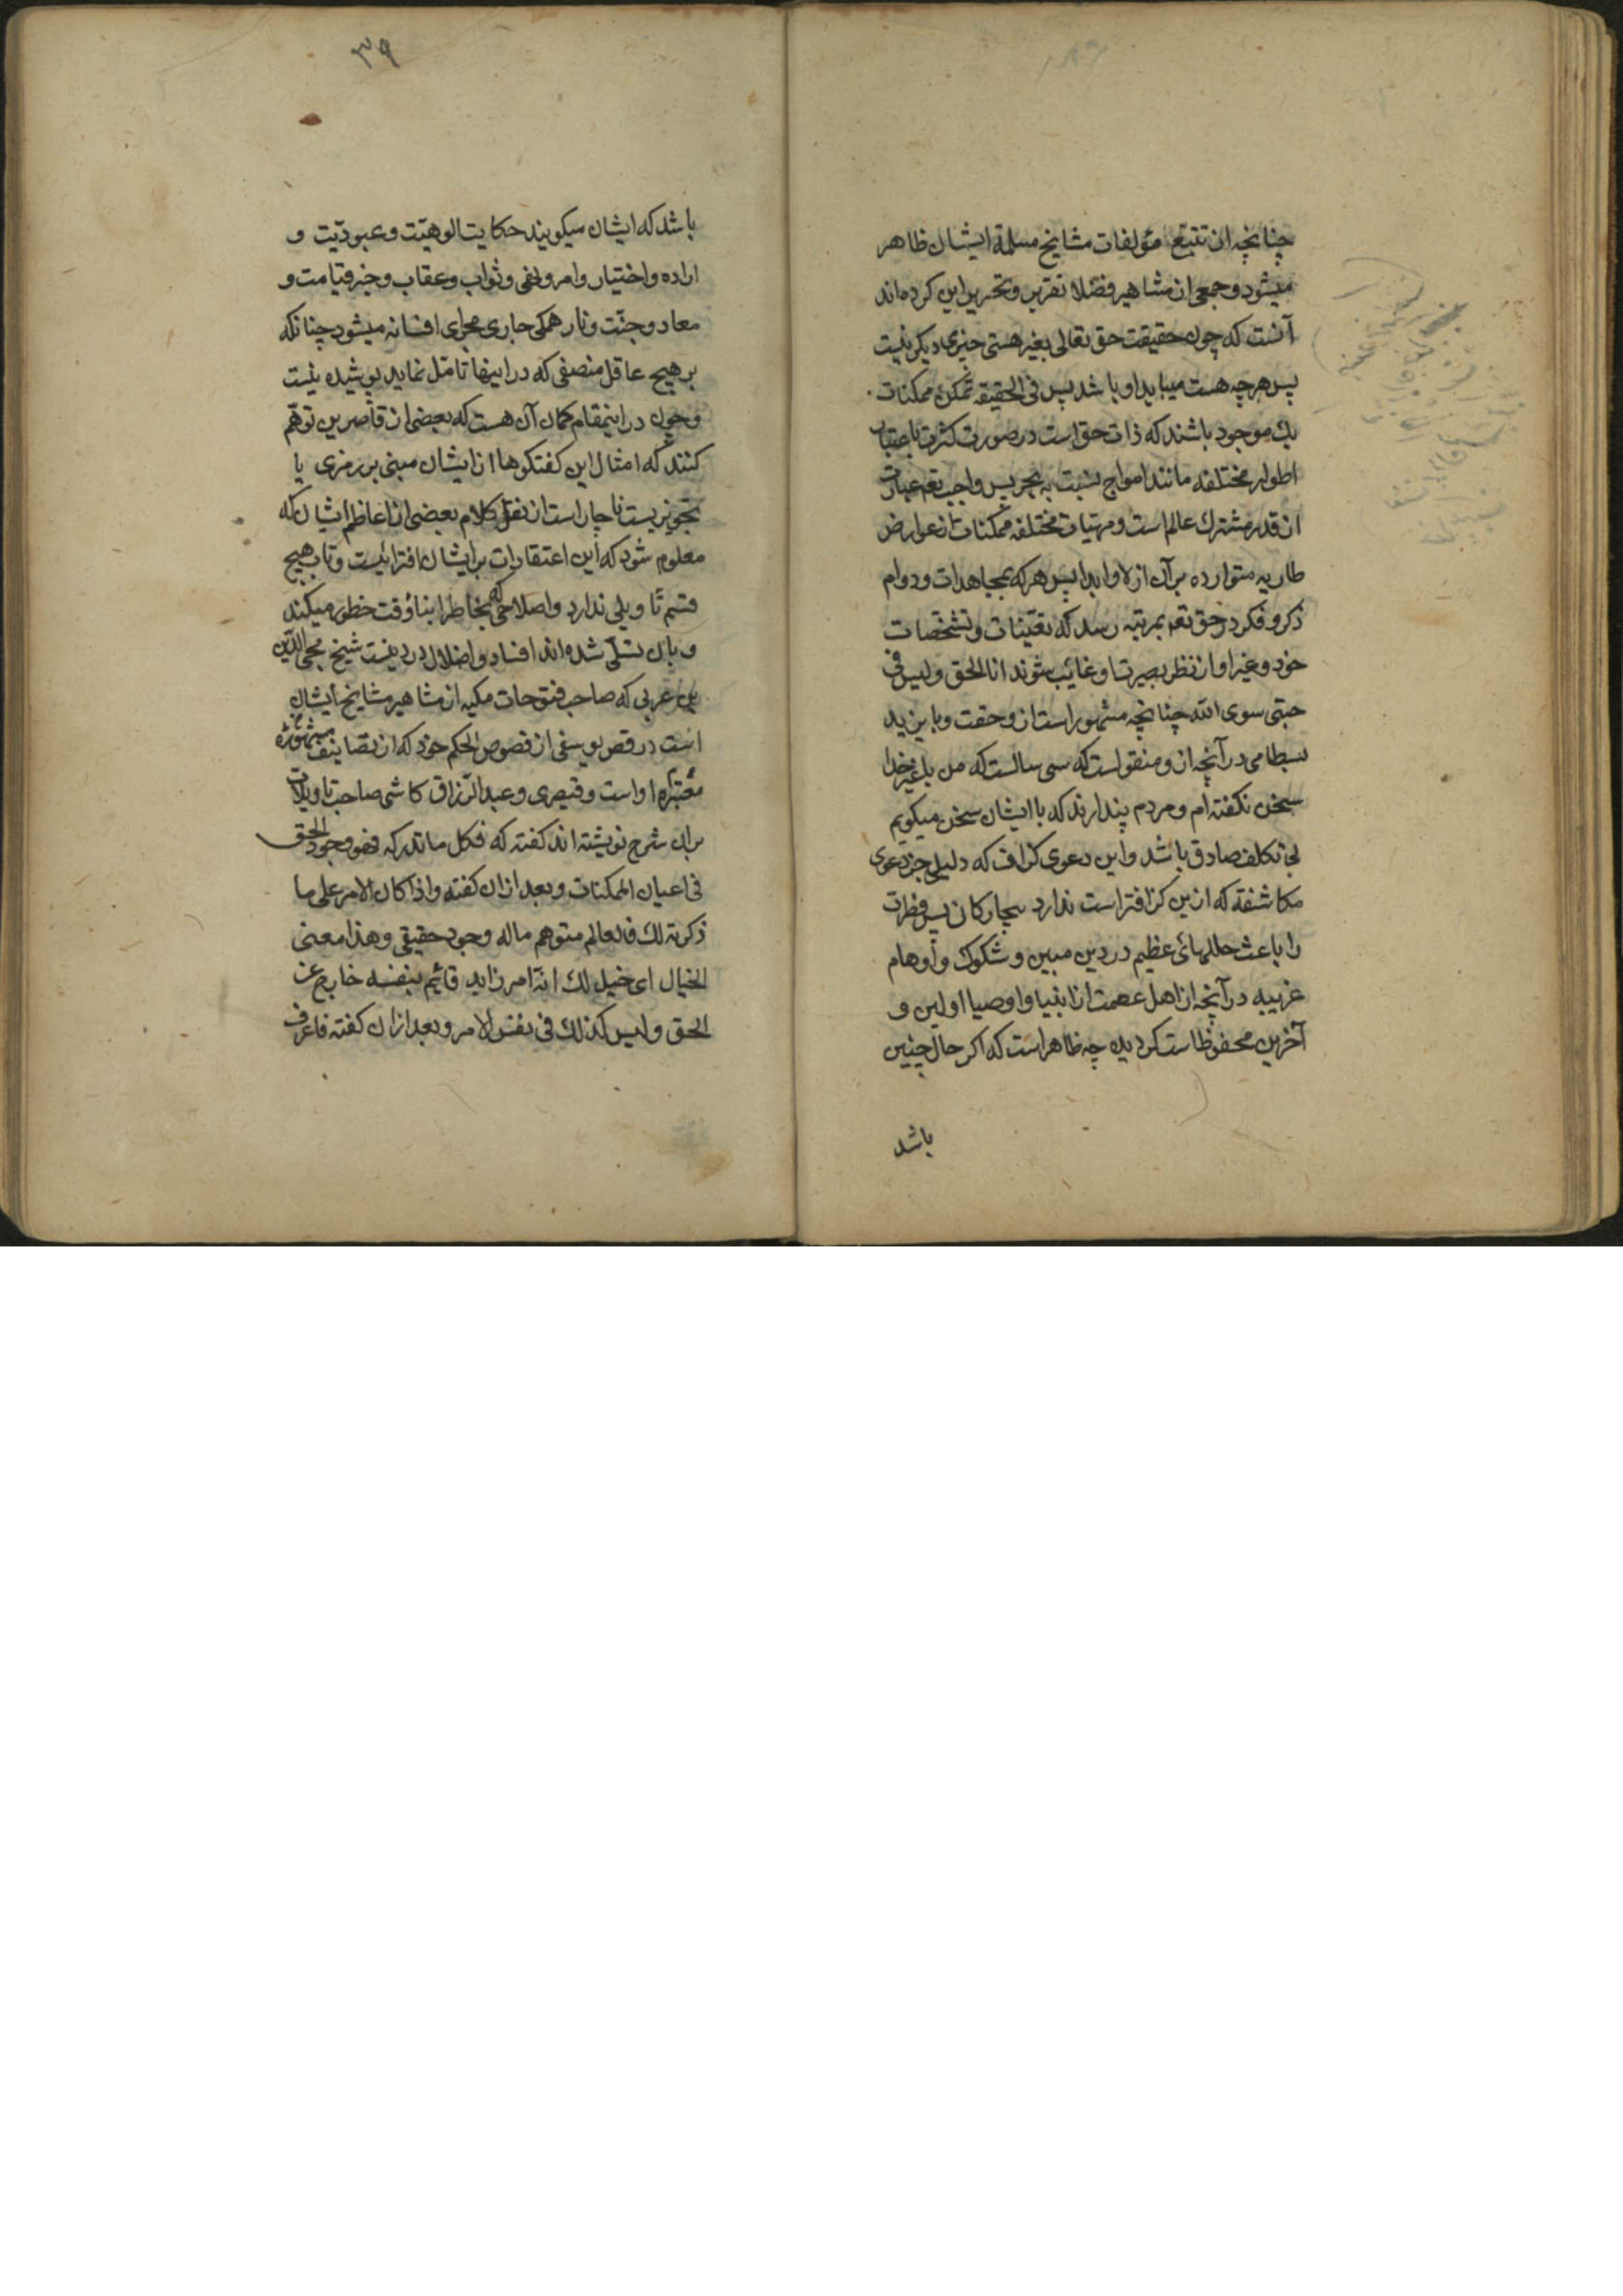 چنانچه از تتبع مؤلفات مشایخ مسلمهٔ ایشان ظاهر
میشود و جمعی از مشاهیر فضلا تقریر و تحریر این کرده‌اند
آنست که چون حقیقت حق تعالی بغیر هستی چیزی دیکر نیست
پس هرچه هست میباید او باشد پس فی الحقیقه ممکنات
یک موجود باشند که ذات حق است در صورت کثرت باعتبار
اطوار مختلفه مانند امواج نسبت به بحر پس واجب تعه عبارت
از قدر مشترک عالم است و مهیات مختلفه ممکنات از عوارض
طاریه متوارده بر آن ازلا و ابدا پس هر که بمجاهدات و دوام
ذکر و فکر در حق تعه بمرتبه رسد که تعینات و تشخصات
خود و غیر او از نظر بصیرت او غایب شوند انا الحق و لیس فی
جبتی سوی الله چنانچه مشهور است از و حقت و بایزید
بسطامی در آنچه از و منقولست که سی سالست که من با غیر خدا
سخن نکفته ام و مردم پندارند که با ایشان سخن میکویم
بی تکلف صادق باشد و این دعوی کزاف که دلیلی جز دعوی
مکاشفه که از ین کزافتر است ندارد بیچارکان پس فطرت
را باعث خللهائ عظیم در دین مبین و شکوک و أوهام
غریبه در آنچه از اهل عصمت از انبیا و اوصیا اولین و
آخرین محفوظا ست کردیده چه ظاهر است که اکر حال چنین
باشد
۳۹
باشد که ایشان میکویند حکایت الوهیّت و عبودیّت و
اراده و اختیار و امر و نهی و ثواب و عقاب و خبر قیامت و
معاد و جنّت و نار همکی جاری مجرای افسانه میشود چنانکه
بر هیچ عاقل منصفی که در اینها تامّل نماید پوشیده نیست
و چون در اینمقام کمان آن هست که بعضی از قاصرین توهّم
کنند که امثال این کفتکوها از ایشان مبنی بر رمزی یا
تجویزیست ناچار است از نقل کلام بعضی از اعاظم ایشان که
معلوم شود که این اعتقادات بر ایشان افترا نیست و تاب هیچ
قسم تأویلی ندارد و اصلاحی که بخاطر ابناء وقت خطور میکند
و بان تسلّی شده‌اند افساد و اضلال در دینست شیخ محیی الدّین
بن عربی که صاحب فتوحات مکیه از مشاهیر مشایخ ایشان
است در فص یوسفی از فصوص الحکم خود که از تصانیف مشهوره
معتبره او است و قیصری و عبد الرّزاق کاشی صاحب تاویلات
بر ان شرح نوشته اند کفته که فکل ما تدرکه فهو وجود الحق
فی اعیان الممکنات و بعد از ان کفته و اذا کان الامر علی ما
ذکرته لک فالعالم متوهم ماله وجود حقیقی و هذا معنی
الخیال ای خیل لک انّه امر زاید قائیم بنفسه خارج عن
الحق و لیس کذلک فی نفس الامر و بعد ازان کفته فاعرف